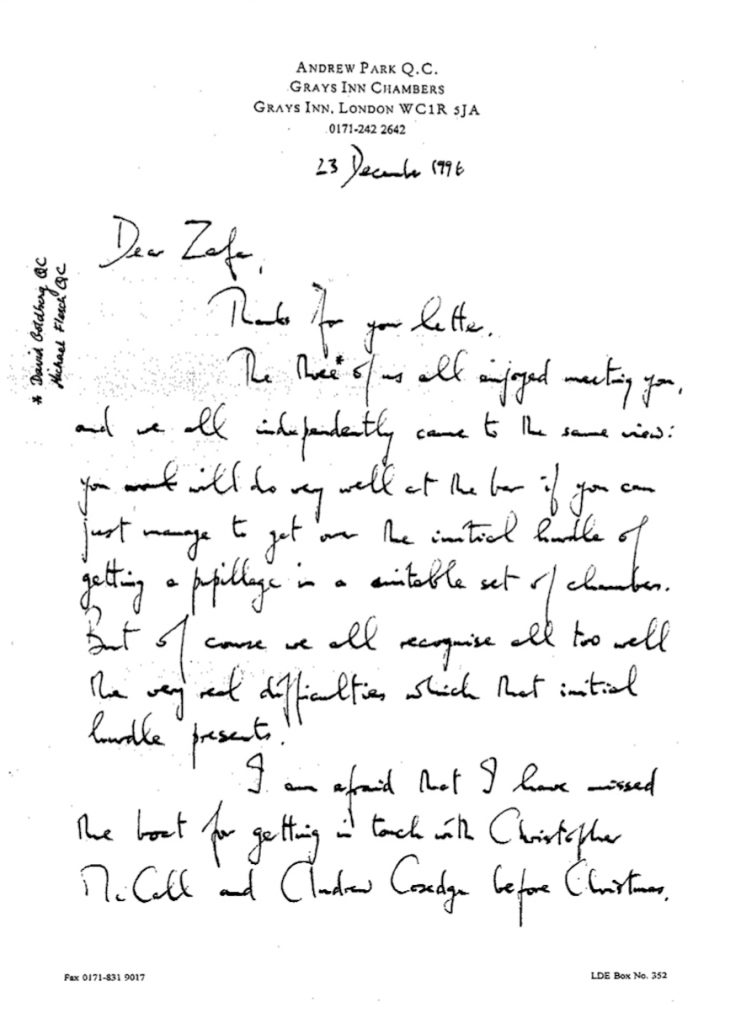 ANDREW PARK Q.C.
GRAYS INN CHAMBERS
GRAYS INN, LONDON WC1R 5JA
0171-242 2642
23 December 1996
Dear Zafar,
* David Goldberg QC
Michael Flesch QC
Thanks for your letter.
The three* of us all enjoyed meeting you,
and we all independently came to the same view:
you will do very well at the bar if you can
just manage to get over the initial hurdle of
getting a pupillage in a suitable set of chambers.
But of course we all recognise all too well
the very real difficulties which that initial
hurdle presents.
I am afraid that I have missed
the boat for getting in touch with Christopher
McCall and Andrew before Christmas.
Fax 0171-831 9017
LDE Box No. 352